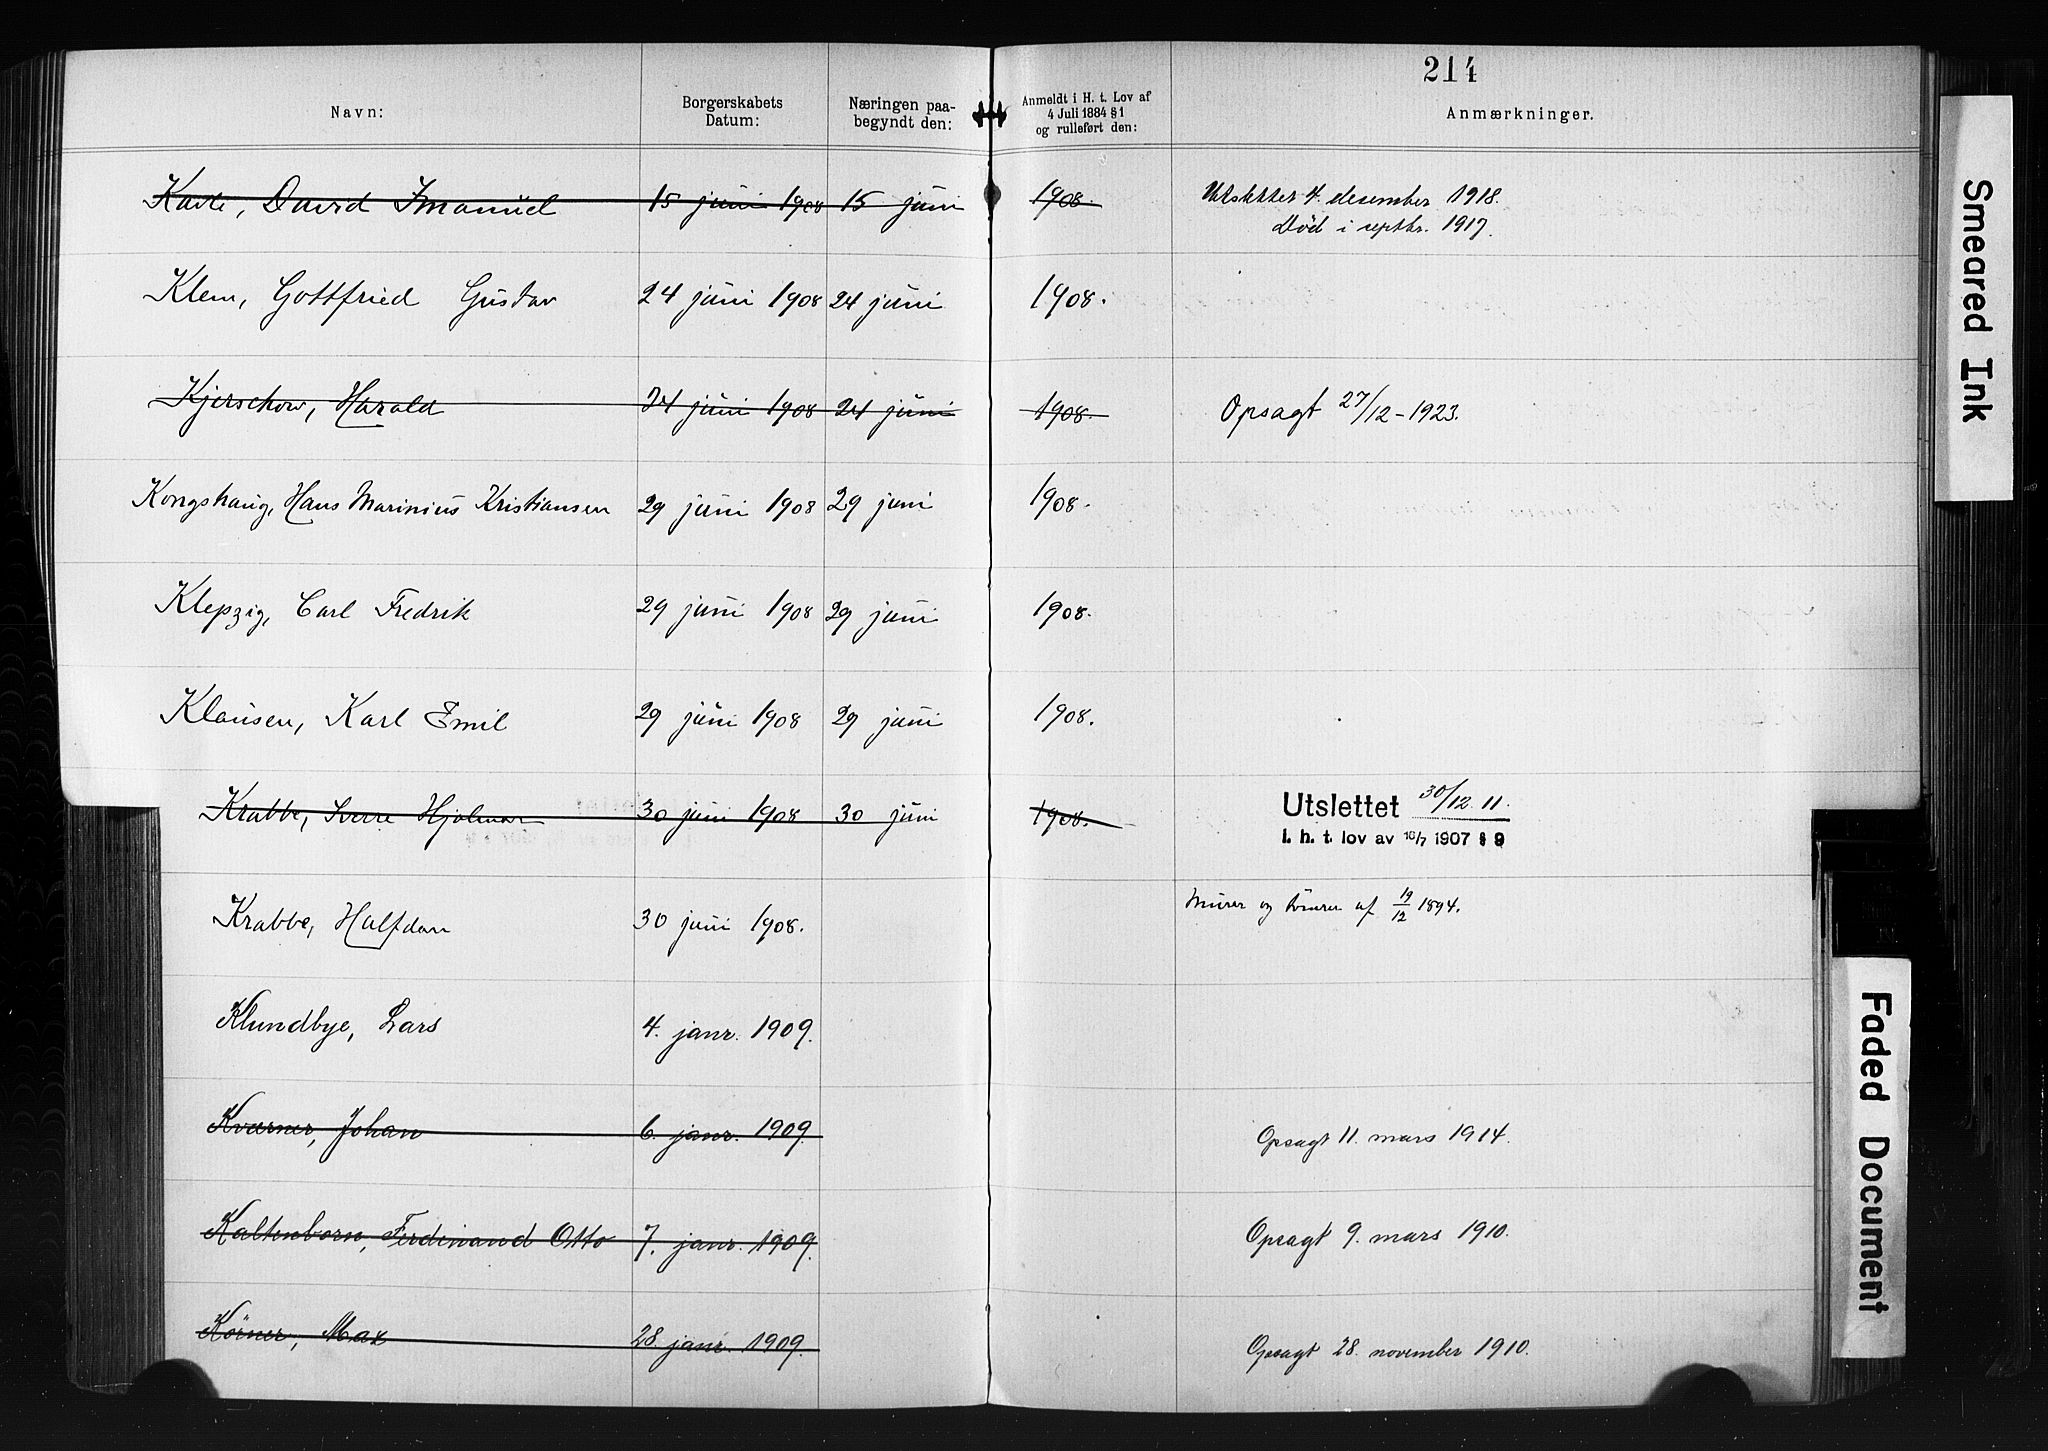 214
Navn: Borgerskabets Datum: Næringen paa-begyndt den: Anmeldt i H. t. Lov af 4 Juli 1884 § 1 og rulleført den: Anmærkninger.
Kavli, David Imanuel 15 juni 1908 15 juni 1908. Utslettet 4. desember 1918.
Død i septbr. 1917.
Klem, Gottfried Gustav 24 juni 1908 24 juni 1908.
Kjerschow, Harald 24 juni 1908 24 juni 1908. Opsagt 27/12-1923.
Kongshaug, Hans Marinius Kristiansen 29 juni 1908 29 juni 1908.
Klepzig, Carl Fredrik 29 juni 1908 29 juni 1908.
Klausen, Karl Emil 29 juni 1908 29 juni 1908.
Krabbe, Sverre Hjalmar 30 juni 1908 30 juni 1908. Utslettet 30/12.11.
i. h. t. lov av 16/7 1907 § 9
Krabbe, Halfdan 30 juni 1908. Murer og tømrer af 19/12 1894.
Klundbye, Lars 4. janr. 1909.
Kværner, Johan 6. janr. 1909. Opsagt 11. mars 1914.
Kaltenborn, Ferdinand Otto 7. janr. 1909. Opsagt 9. mars 1910.
Körner, Max 28. janr. 1909. Opsagt 28. november 1910.
Smeared Ink
Faded Document